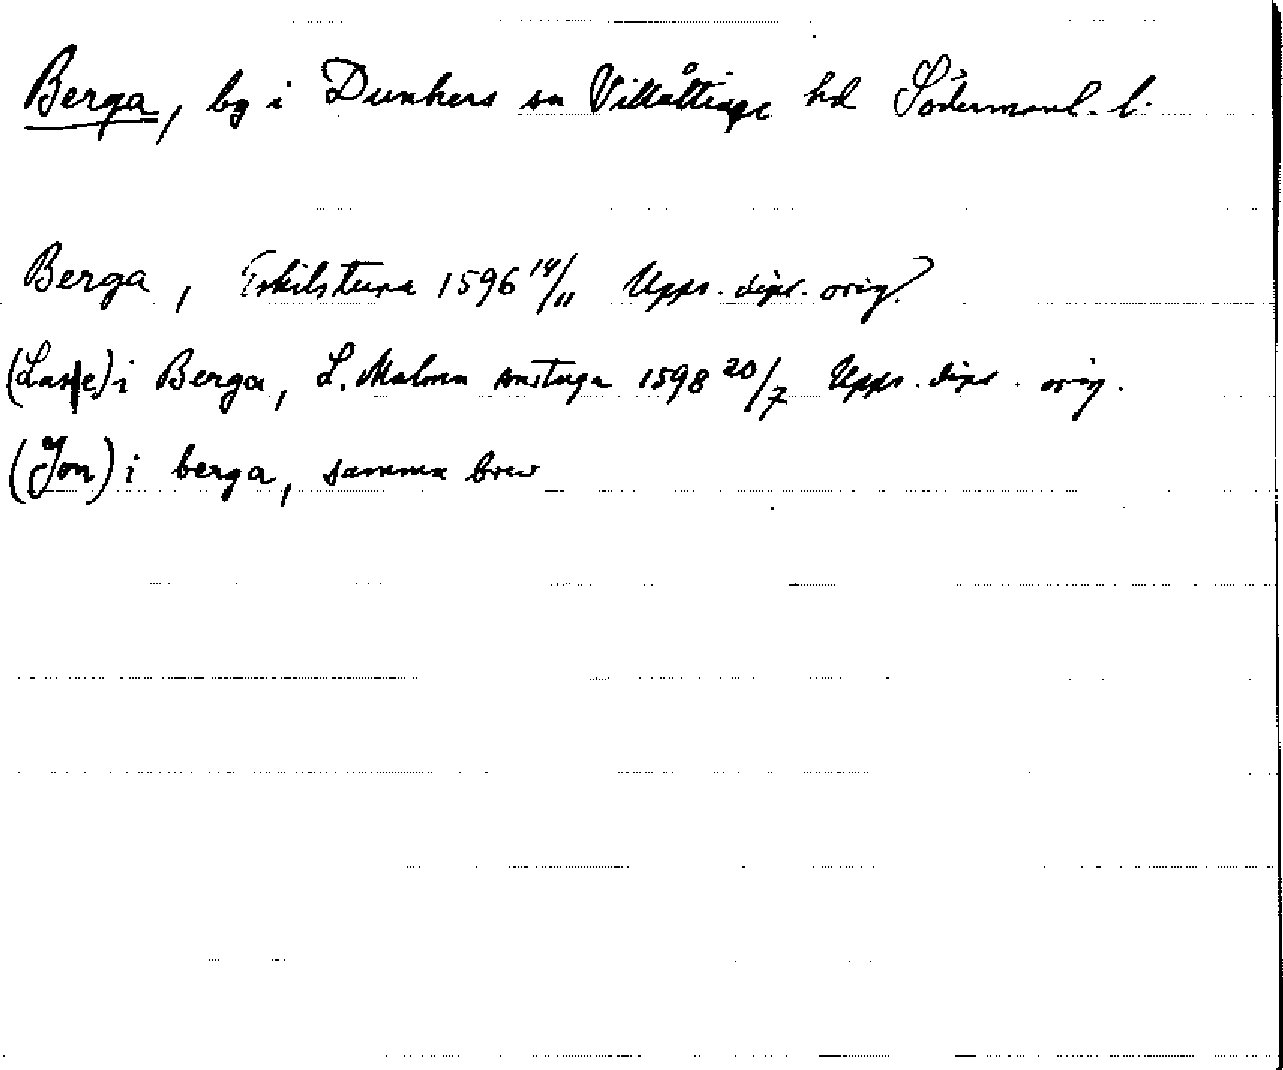 Berga, by i Dunkers sn Villåttinge hd Södermanl. l.
Berga, Eskilstuna 1596 14/11 Upps. dipl. orig.
(Lasse) i Berga, L. Malma sockenstuga 1598 20/7 Upps. dipl. orig.
(Jon) i berga, samma brev